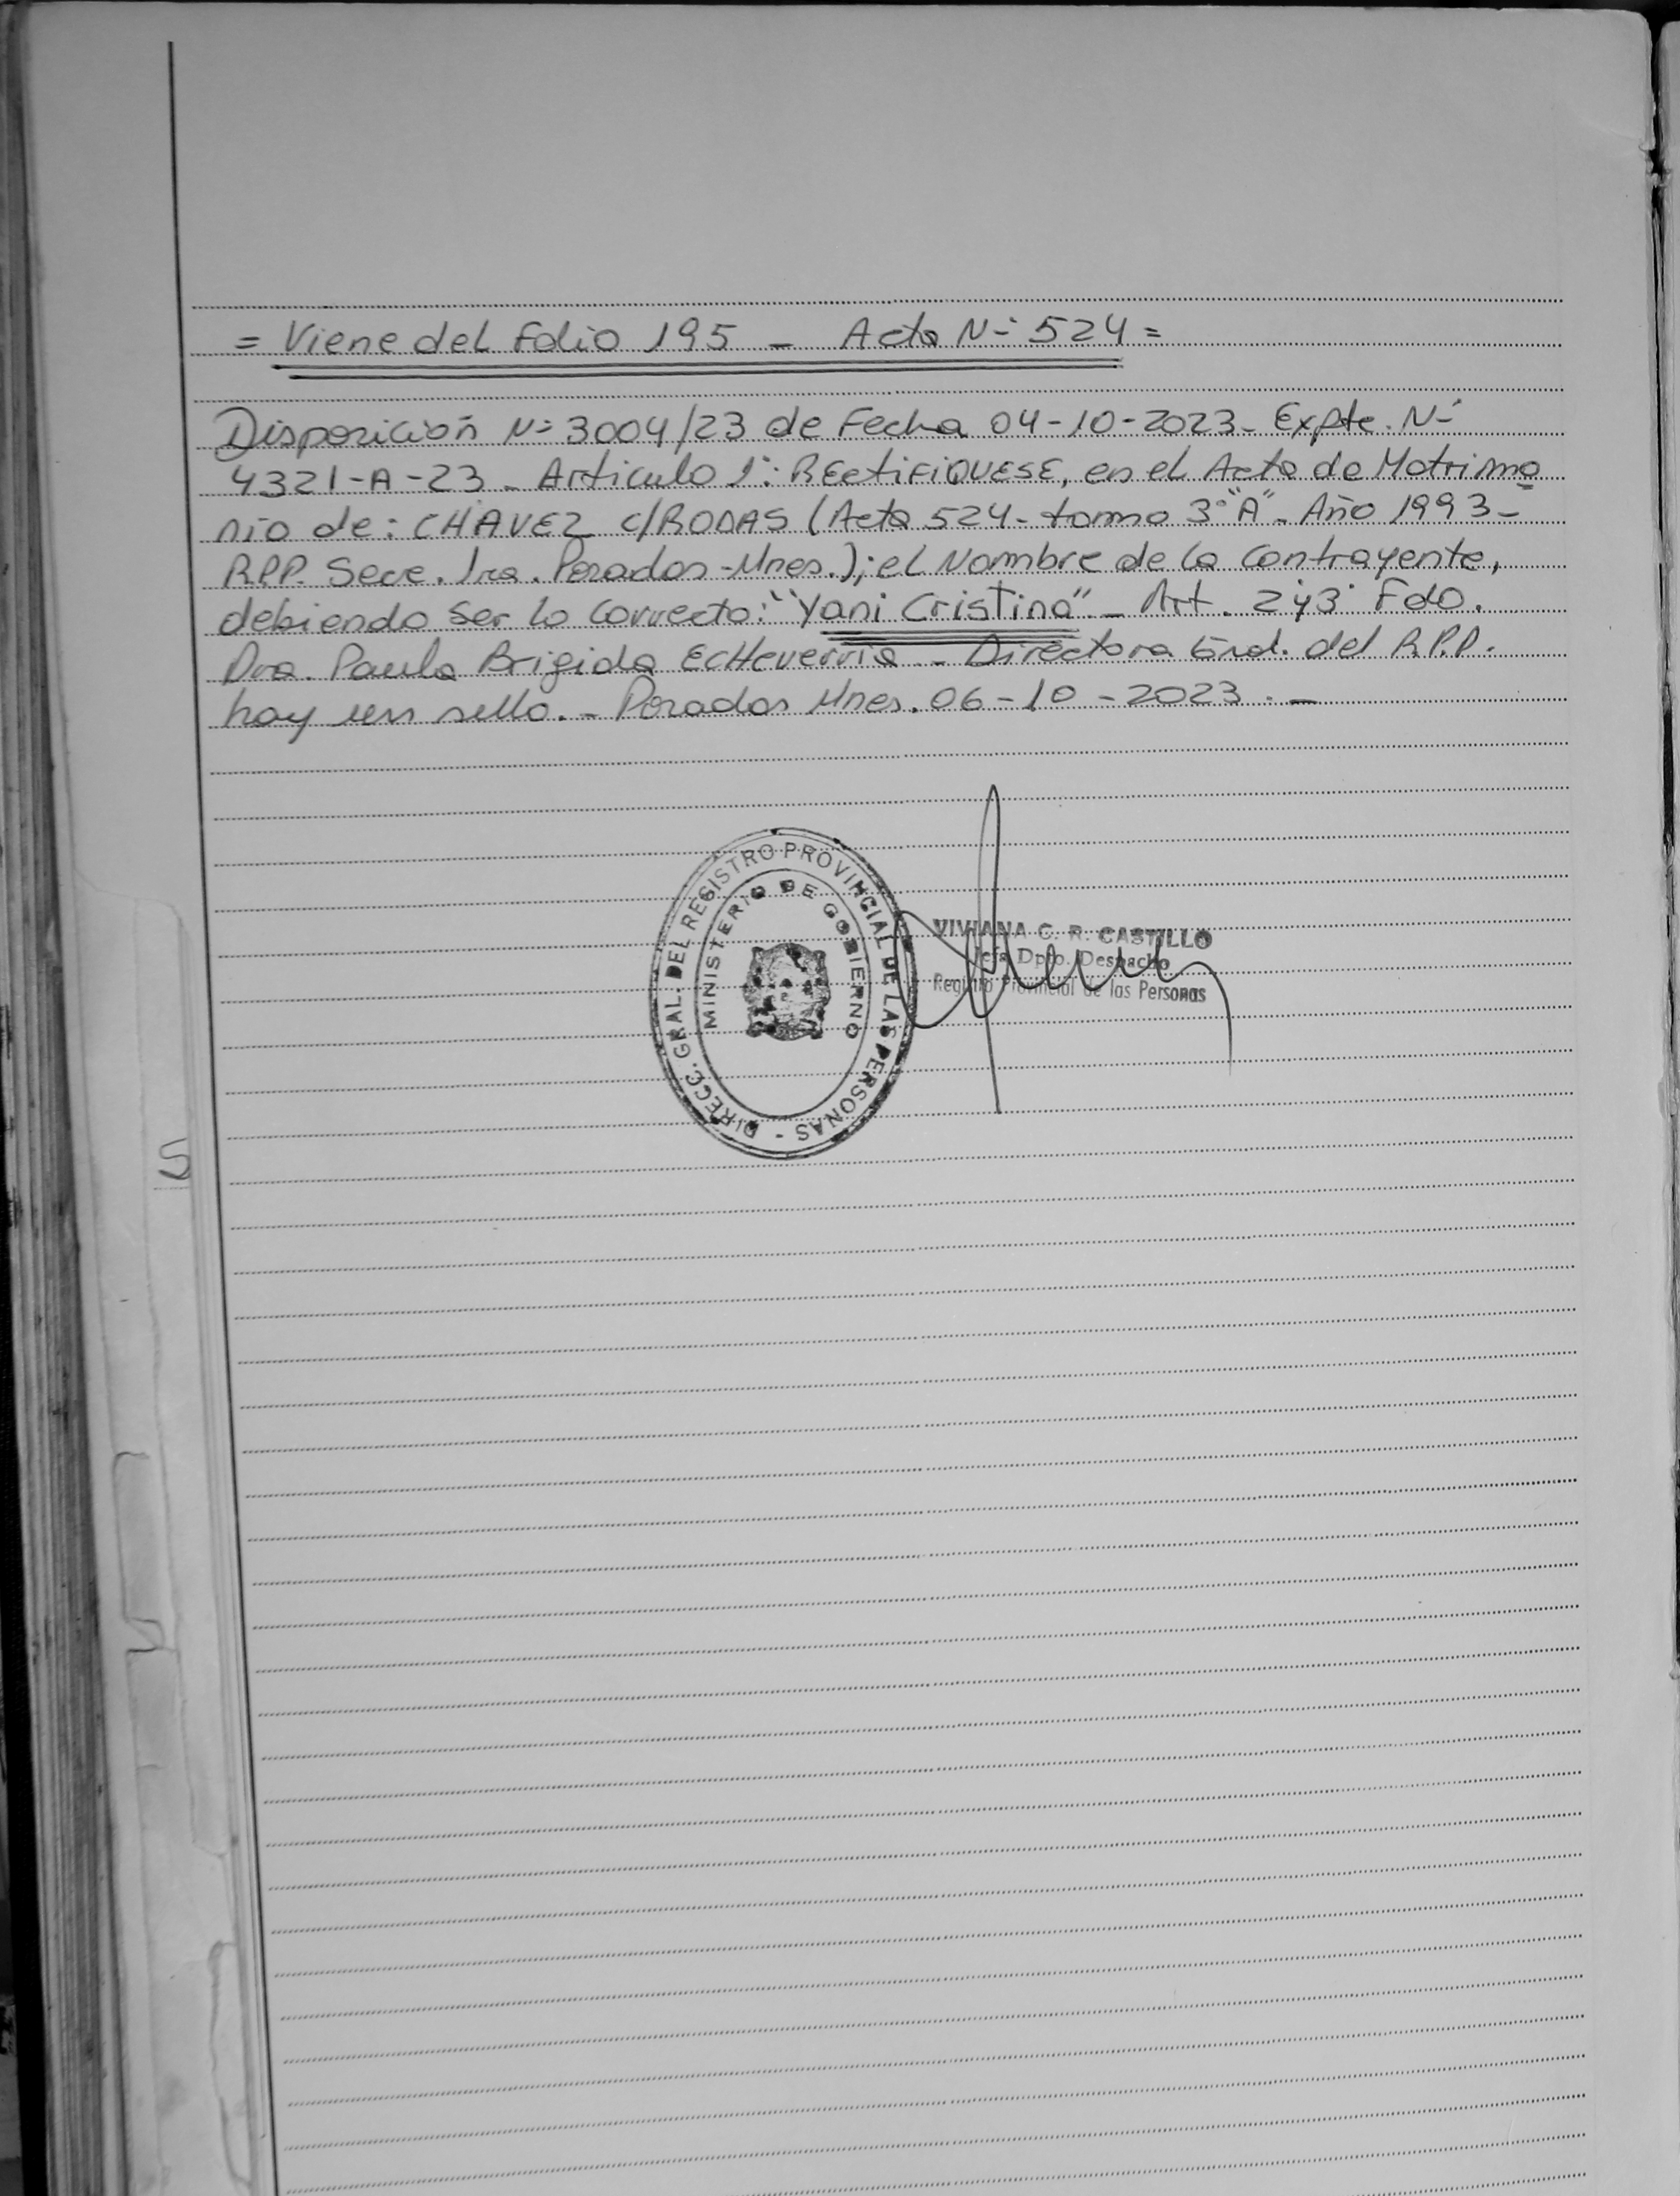 = Viene del Folio 195 - Acta Nº 524 =
Disposición Nº 3004/23 de Fecha 04-10-2023- Expte. Nº
4321-A-23 - Articulo 1º: RECtiFiQUESE, en el Acta de Matrimo
nio de: CHAVEZ C/RODAS (Acta 524- tomo 3º "A" - Año 1993-
RPP. Secc. 1ra. Posadas-Mnes.); el Nombre de la contrayente,
debiendo ser lo correcto: "Yani Cristina" - Art. 2 y 3º Fdo.
Dra. Paula Brigida EcHeverria - Directora Gral. del R.P.P.
hay un sello. - Posadas Mnes. 06-10-2023. -
DIRECC. GRAL. DEL REGISTRO PROVINCIAL DE LAS PERSONAS -
MINISTERIO DE GOBIERNO
VIVIANA C. R. CASTILLO
Jefa Dpto. Despacho
Registro Provincial de las Personas